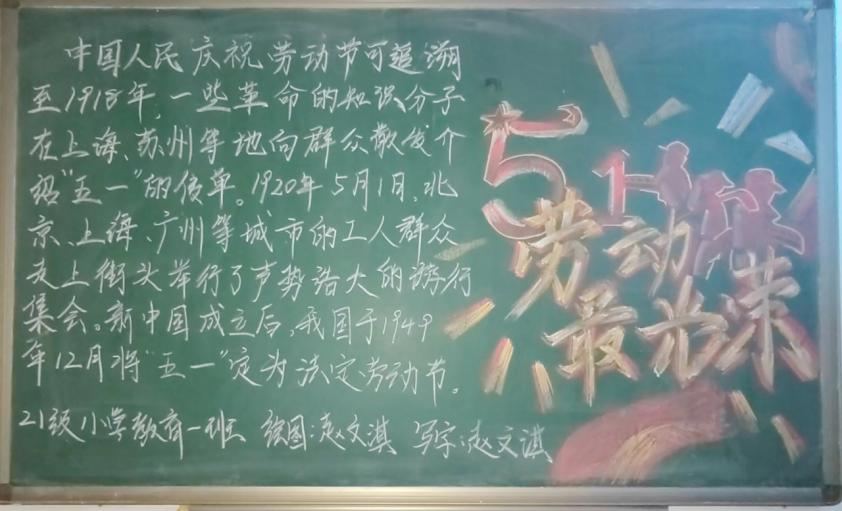 中国人民庆祝劳动节可追溯
至1918年,一些革命的知识分子
在上海、苏州等地向群众散发介
绍"五一"的传单。1920年5月1日,北
京、上海、广州等城市的工人群众
走上街头举行了声势浩大的游行
集会。新中国成立后,我国于1949
年12月将"五一"定为法定劳动节。
21级小学教育一班 绘图:赵文淇 写字:赵文淇
51
劳动
最光荣